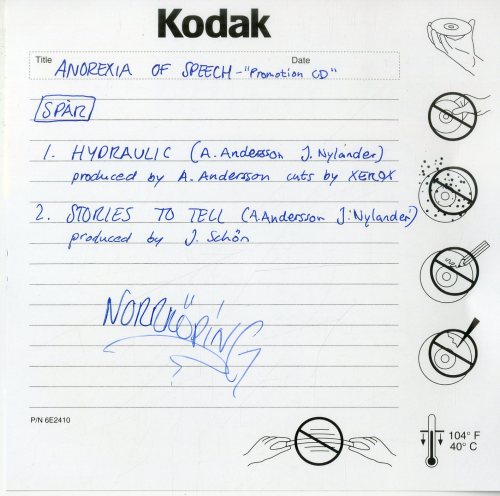 Kodak
Title ANOREXIA OF SPEECH - "Promotion CD" Date
SPÅR
1. HYDRAULIC (A. Andersson J. Nylander)
produced by A. Andersson cuts by XEROX
2. STORIES TO TELL (A. Andersson J. Nylander)
produced by J. Schön
NORRKÖPING
P/N 6E2410
104° F
40° C